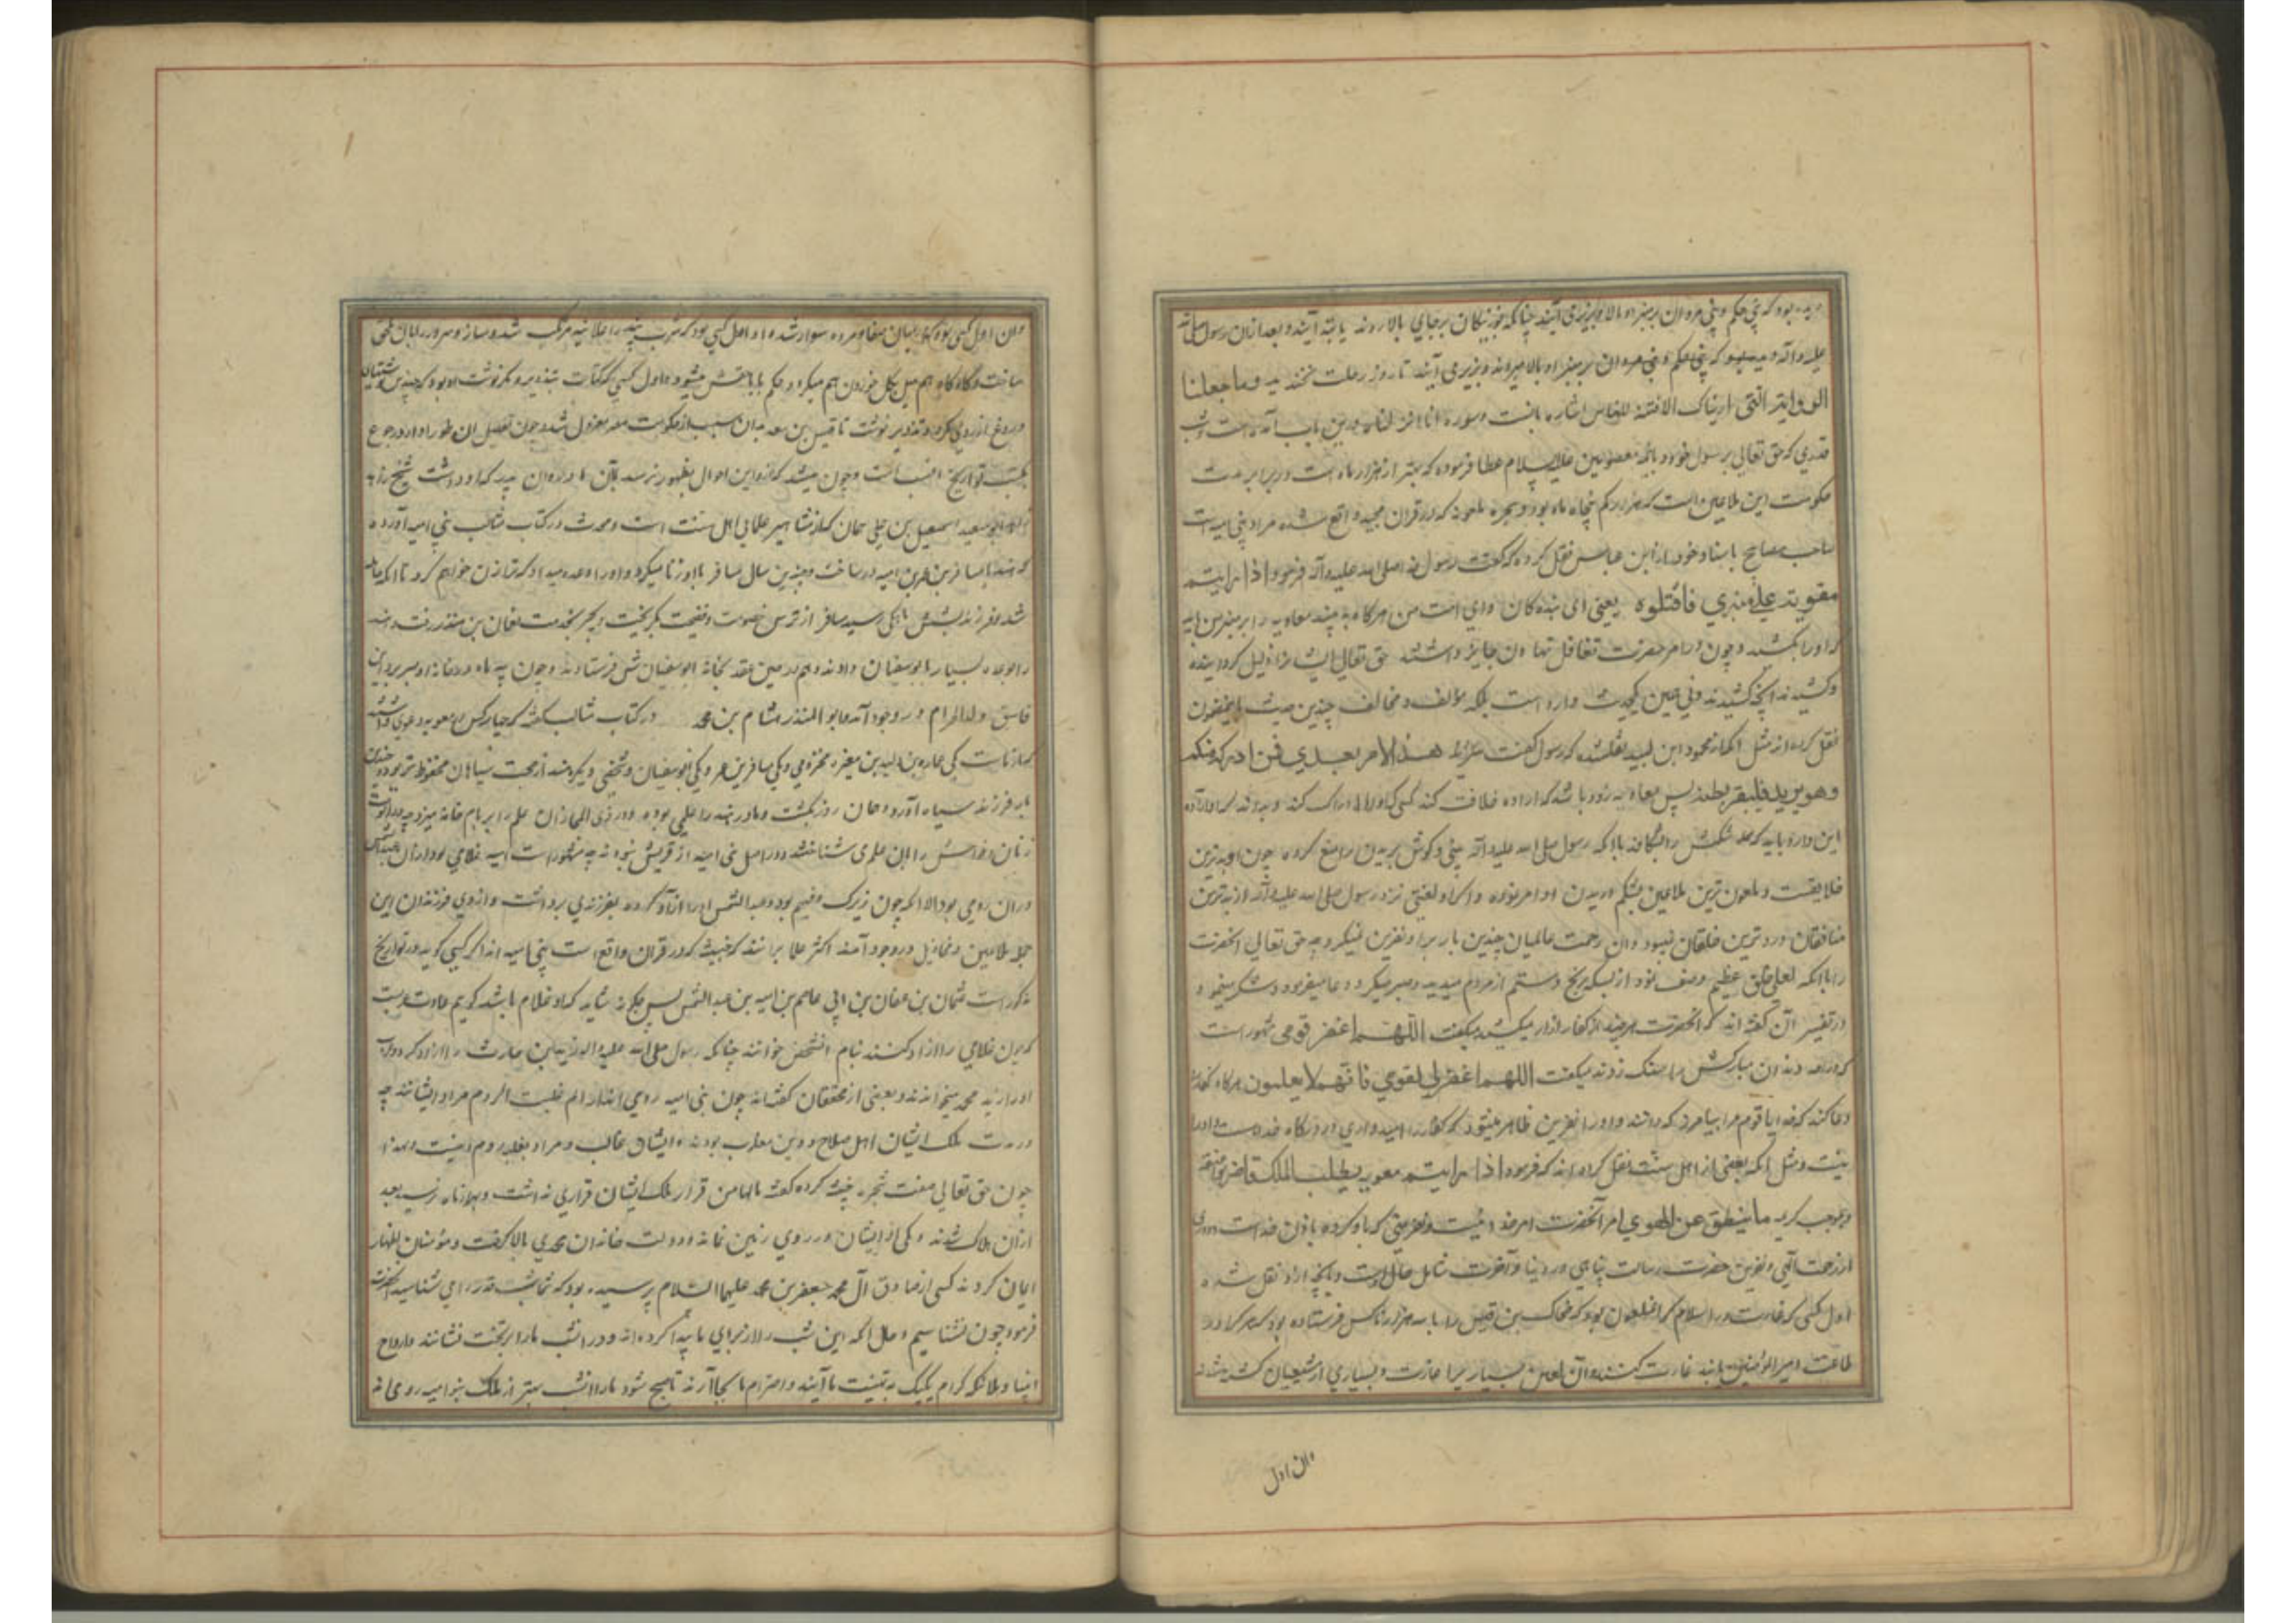 بود که بنی حکم و بنی مروان بر منبر او بالا و بزیر می آیند چنانکه بوزینکان بر جای بالا روند یا بته آیند و بعد از آن رسول صلی الله
علیه و آله که بنی حکم و بنی مروان بر منبر او بالا میروند و بزیر می آیند تا روز رحلت نخندید وما جعلنا
الرویا التی اریناک الا فتنة للناس اشاره بانست و سوره انا انزلناه درین باب آمده است و شب
قدری که حق تعالی برسول خود و بائمه معصومین علیهم السلام عطا فرموده که بهتر از هزار ماه است در برابر مدت
حکومت این ملاعین است که هزار ماه بود و شجره ملعونه که در قران مجید واقع شده مراد بنی امیه است
صاحب مصابیح باسناد خود از ابن عباس نقل کرده که گفت رسول خدا صلی الله علیه و آله فرمود اذا رایتم
معویة علی منبری فاقتلوه یعنی ای بنده کان و ای امت من هرکاه به بینید معاویه را بر منبر من باید
که او را بکشید و چون در امر حضرت تغافل و تهاون جایز داشتند حق تعالی ایشانرا ذلیل کردانیده
و کشیدند آنچه کشیدند و نی همین یکحدیث وارد است بلکه مؤلف و مخالف چندین حدیث باینمضمون
نقل کرده اند مثل آنکه از محمود ابن لبید نقلشده که رسول گفت هذا الامر بعدی فمن ادرکه منکم
وهو یرید فلیبقر بطنه پس معاویه زود باشد که اراده خلافت کند کسی که او را ادراک کند و بیند که او اراده
این دارد باید که شکمش را بشکافد با آنکه رسول صلی الله علیه و آله بینی و کوش بریدن را منع کرده چون او بدترین
خلایقست و ملعون ترین ملاعین بشکم دریدن او امر نموده و اکر او لعنتی نزد رسول صلی الله علیه و آله از بدترین
منافقان و رد ترین خلقان نمیبود و آن رحمت عالمیان چندین بار بر او نفرین نمیکرد چه حق تعالی انحضرت
را با آنکه لعلی خلق عظیم وصف نمود از بسکه رنج و ستم از مردم میدید و صبر میکرد و دعا میفرمود و شکر مینمود و
در تفسیر آن گفته اند که انحضرت هرچند از کفار ازار میکشید میکفت اللهم اغفر قومی مشهور است
که در احد دندان مبارکش را بسنک زدند میکفت اللهم اغفر لقومی فانهم لا یعلمون هرکاه کفار را
دعا کند که خدایا قوم مرا بیامرز که ندانند و او را نفرین ظاهر میشود که کفار را امیدواری از درکاه خدا هست و او را
نیست و مثل آنکه بعضی از اهل سنت نقل کرده اند که فرمود اذا رایتم معویه یطلب الملک فاضربوا عنقه
و بموجب کریمه ما ینطق عن الهوی امر آنحضرت امر خداست و نفرینی که باو کرده باذن خداست و دوری
از رحمت الهی و نفرین حضرت رسالت پناهی در دنیا و آخرت شامل حال اوست و آنچه از او نقل شده
اول کسی که غارت در اسلام کرد آنملعون بود که ضحاک بن قیس را با سه هزار ناکس فرستاده بود که هر کرا در
طاعت امیر المؤمنین یابند غارت کنند و آن لعین بسیاریرا غارت و بسیاری از شیعیان کشته شدند
وان اول
وان اول کسی بود که در میان صفا و مروه سوار شده و او اول کسی بود که شرب نبیذ را علانیه مرتکب شد و ساز و سرود را بآن ملحق
ساخت و گاه گاه هم میل بگل خوردن هم میکرد و اول کسی که کتابت بتذویر و مکر نوشت او بود که چندین
دروغ از روی مکر و تذویر نوشت تا قیس بن سعد بدان سبب از حکومت مصر معزول شد و چون تفصیل ان طور را دارد رجوع
بکتب تواریخ انسب است و چون میشد که از و این احوال بظهور نرسد بآن مادر و ان پدر که او داشت شیخ زاهد
ابو سعید اسمعیل بن علی سمان که از مشاهیر علمای اهل سنت است و محدث در کتاب مثالب بنی امیه آورده
که هند با مسافر بن عمر بن امیه در ساخت و چندین سال مسافر با او زنا میکرد و او را وعده میداد که ترا زن خواهم کرد تا آنکه حامله
شد و فرزند بشش ماهکی رسید مسافر از ترس خصومت و فضیحت بکریخت و بحیره بخدمت نعمان بن منذر رفت و هند
را بوعده بسیار بابوسفیان دادند و هم در حین عقد بخانه ابوسفیان فرستادند و چون سه ماه در خانه او بسر برد این
فاسق ولد الحرام در وجود آمد و ابو المنذر هشام بن محمد در کتاب مثالب گفته که چهار کس در معویه دعوی داشتند
که از ماست یکی عماره بن ولید بن مغیره مخزومی و یکی مسافر بن عمر و یکی ابوسفیان و شخصی دیگر و هند از صحبت سیاهان محظوظتر بود و چند
بار فرزند سیاه آورد و همان روز بکشت و مادر هند را علمی بوده و در ذی المجاز ان علم را بر بام خانه میزد چه
زنان فاحشه را بان علم می شناختند و در اصل بنی امیه از قریش نبوده اند چه مشهور است امیه غلامی بود از ان عبدالشمس
و ان رومی بود الا آنکه چون زیرک و فهیم بود و عبد الشمس او را ازاد کرده بفرزندی برداشت و از وی فرزندان این
جمله ملاعین و تخاذیل در وجود آمد اکثر علما برانند که خبیثه که در قران واقع است بنی امیه اند اکر کسی کوید در تواریخ
مذکور است عثمان بن عفان بن ابی عاصم بن امیه بن عبد الشمس پس چکونه شاید که او غلام باشد کویم عادت عربست
که چون غلامی را ازاد کنند بنام انشخص خوانند چنانکه رسول صلی الله علیه و اله زید بن حارث را ازاد کرد و
او را زید محمد میخواندند و بعضی از محققان گفته اند چون بنی امیه رومی اند الم غلبت الروم مراد ایشانند چه
در مدت ملک ایشان اهل صلاح و دین مغلوب بودند و ایشان غالب و مراد بغلبه روم اینست و بعد از
چون حق تعالی صفت شجره خبیثه کرده گفته مالها من قرار ملک ایشان قراری نداشت و بهزار ماه نرسید بعد
از ان هلاک شدند و یکی از ایشان در روی زمین نمانده و دولت خاندان محمدی بالا گرفت و مؤمنان اظهار
ایمان کردند کسی از صادق آل محمد جعفر بن محمد علیهما السلام پرسیده بود که شما شب قدر را می شناسید انحضرت
فرمود چون نشناسیم و حال آنکه این شب را از برای ما پیدا کرده اند و در انشب ما را بر تخت نشانند و ارواح
انبیا و ملائکه کرام یکیک بتهنیت ما آیند و احترام ما بجا آرند تا صبح شود ما را انشب بهتر از ملک بنو امیه